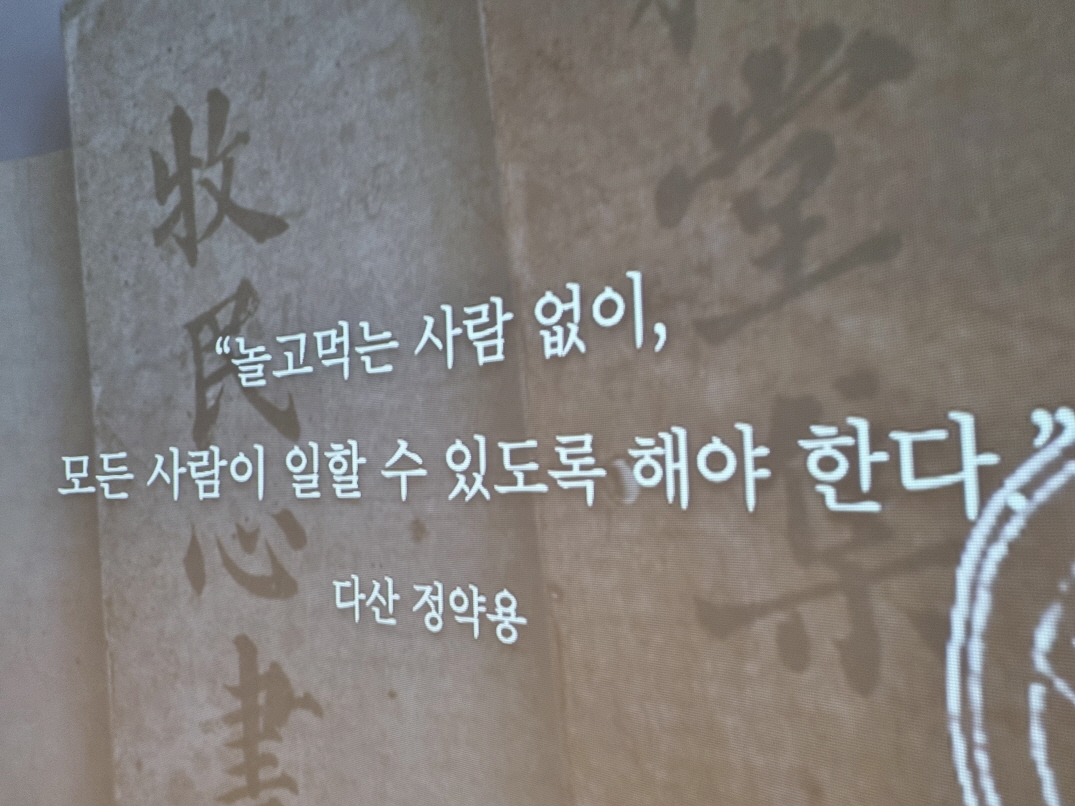 “놀고먹는 사람 없이,
모든 사람이 일할 수 있도록 해야 한다.”
다산 정약용
牧民心書
堂